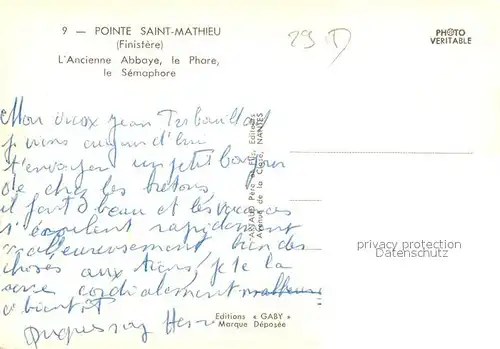 9 — POINTE SAINT-MATHIEU
(Finistère)
L'Ancienne Abbaye, le Phare,
le Sémaphore
PHOTO
VERITABLE
29 D
Mon vieux Jean
je viens aujourd'hui
t'envoyer un petit bonjour
de chez les bretons,
il fait beau et les vacances
s'écoulent rapidement
malheureusement bien des
choses aux tiens, je te la
serre cordialement
a bientôt
ARTAUD Père et Fils, Editeurs
Avenue de la Close, NANTES
privacy protection
Datenschutz
Editions « GABY »
Marque Déposée